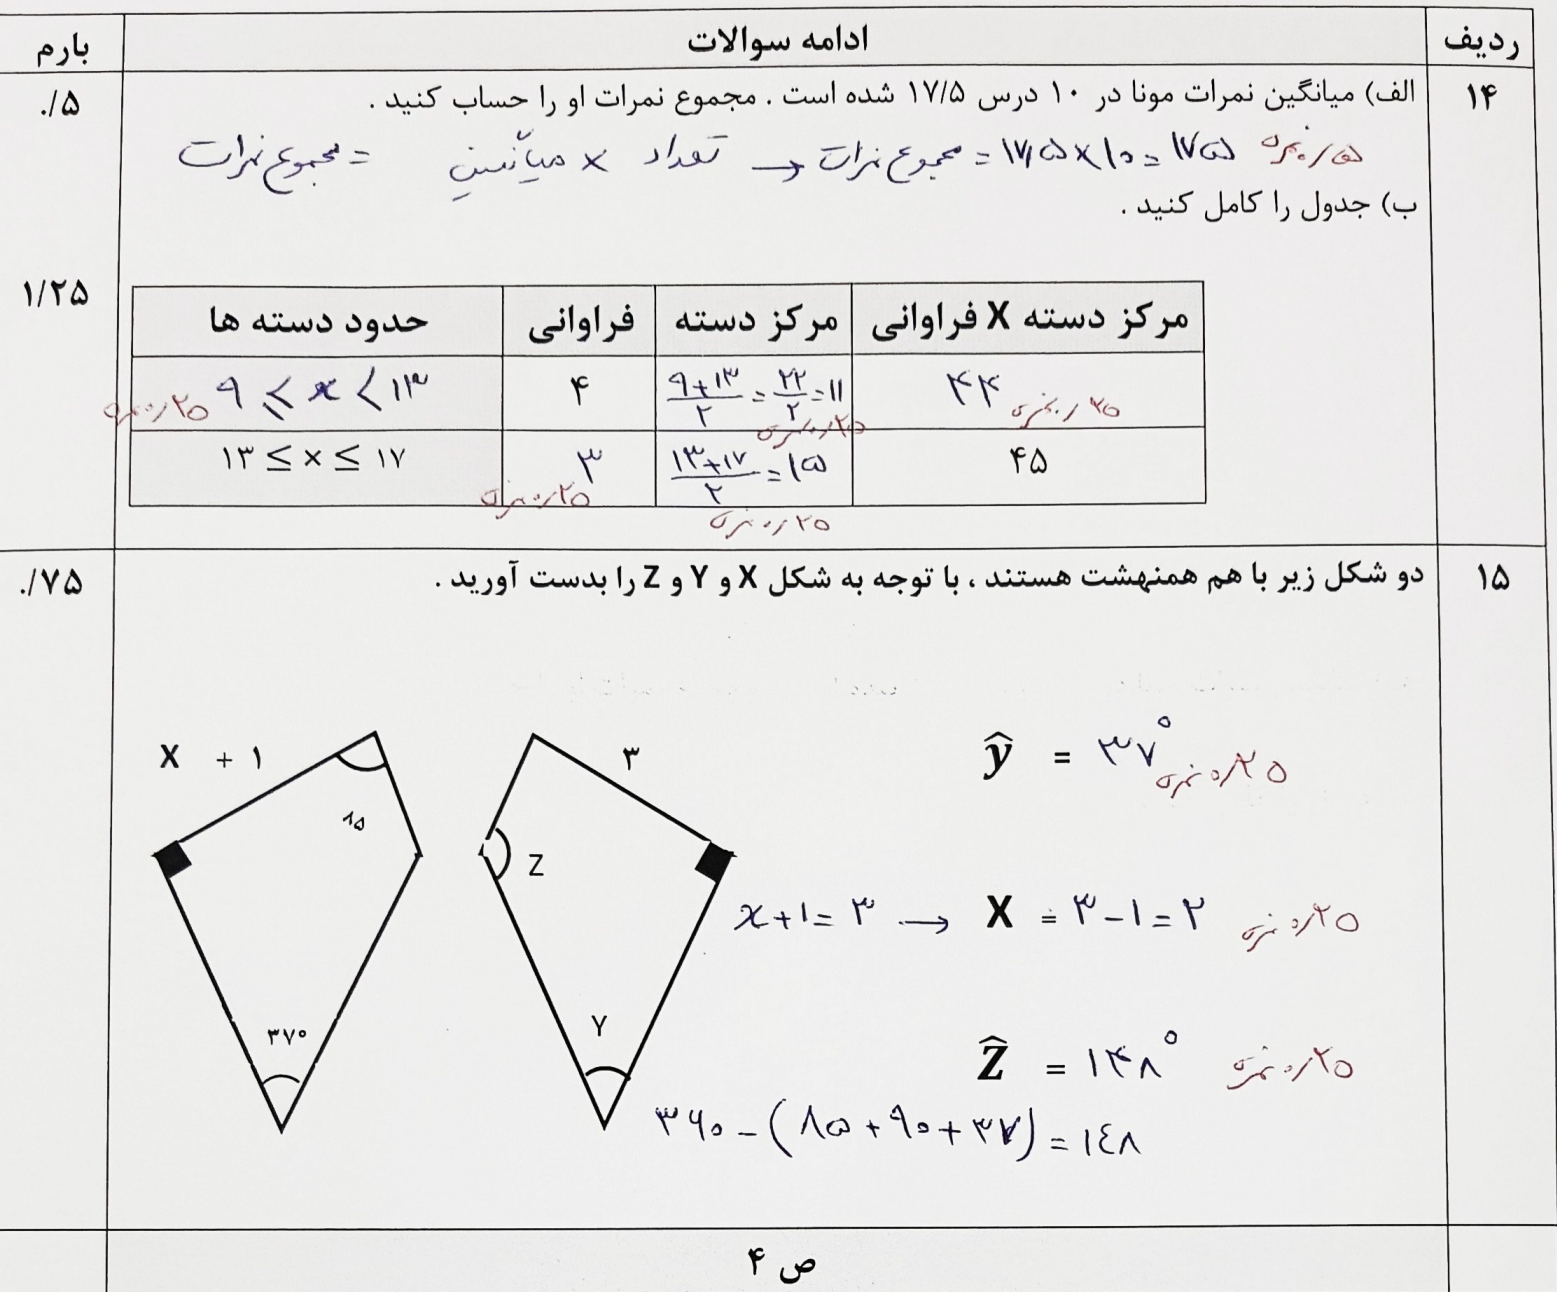 ردیف ادامه سوالات بارم
۱۴ الف) میانگین نمرات مونا در ۱۰ درس ۱۷/۵ شده است . مجموع نمرات او را حساب کنید . ۰/۵
مجموع نمرات = میانگین × تعداد → مجموع نمرات = ۱۷,۵ × ۱۰ = ۱۷۵ ۰/۵ نمره
ب) جدول را کامل کنید .
۱/۲۵
حدود دسته ها فراوانی مرکز دسته مرکز دسته X فراوانی
۹ ≤ x < ۱۳ ۰/۲۵ نمره ۴ (۹+۱۳)/۲ = ۲۲/۲ = ۱۱ ۰/۲۵ نمره ۴۴ ۰/۲۵ نمره
۱۳ ≤ x ≤ ۱۷ ۳ ۰/۲۵ نمره (۱۳+۱۷)/۲ = ۱۵ ۰/۲۵ نمره ۴۵
۱۵ دو شکل زیر با هم همنهشت هستند ، با توجه به شکل X و Y و Z را بدست آورید . ۰/۷۵
X + ۱
۸۵
۳۷°
۳
Z
Y
ŷ = ۳۷° ۰/۲۵ نمره
x+۱=۳ → X = ۳-۱=۲ ۰/۲۵ نمره
Ẑ = ۱۴۸° ۰/۲۵ نمره
۳۶۰-(۸۵+۹۰+۳۷)=۱٤۸
ص ۴